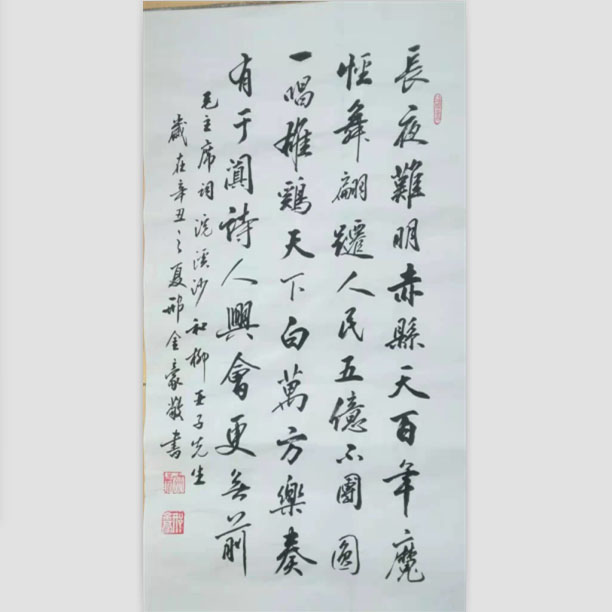 長夜難明赤縣天百年魔
怪舞翩躚人民五億不團圓
一唱雄鷄天下白萬方樂奏
有于闐詩人興會更無前
毛主席詞浣溪沙和柳亚子先生
歲在辛丑之夏邢金豪敬書